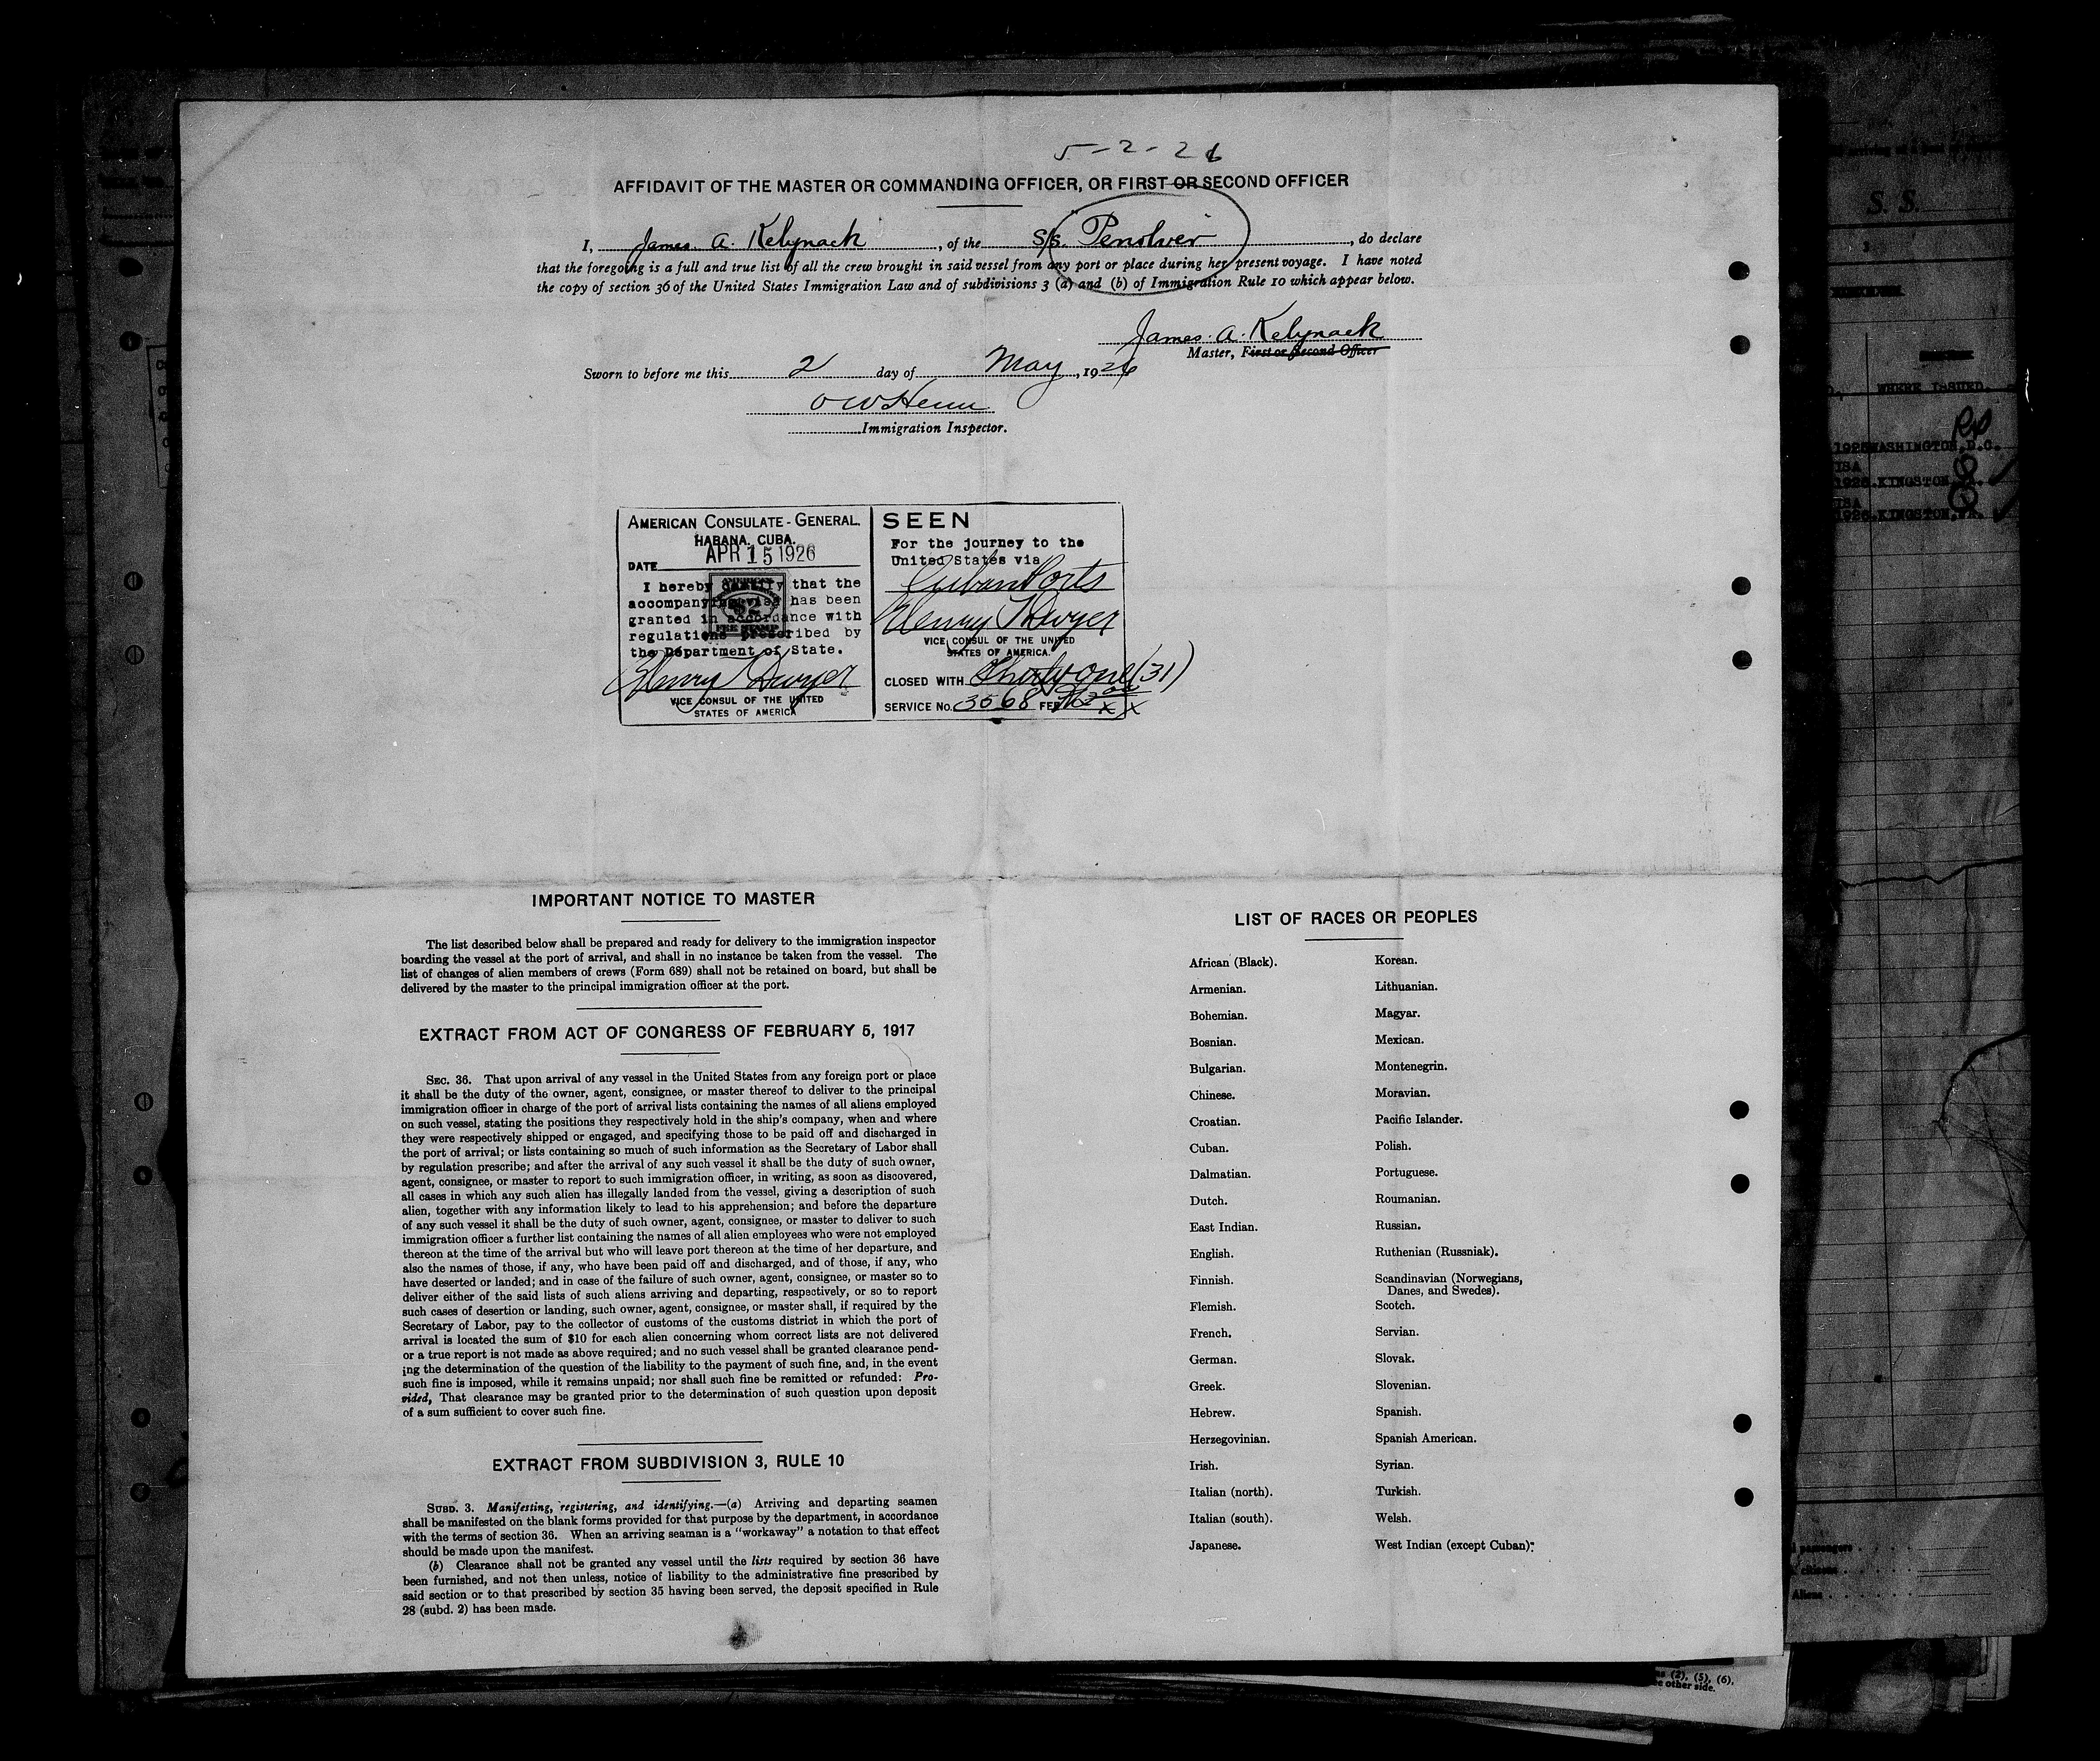 5-2-26
AFFIDAVIT OF THE MASTER OR COMMANDING OFFICER, OR FIRST OR SECOND OFFICER
I, James A. Kelynack, of the S/S. "Penolver", do declare
that the foregoing is a full and true list of all the crew brought in said vessel from any port or place during her present voyage. I have noted
the copy of section 36 of the United States Immigration Law and of subdivisions 3 (a) and (b) of Immigration Rule 10 which appear below.
James. A. Kelynack
Master, First or Second Officer
Sworn to before me this 2 day of May, 1926
O W Henn
Immigration Inspector.
AMERICAN CONSULATE-GENERAL.
HABANA, CUBA.
DATE APR 15 1926
I hereby certify that the
accompanying visa has been
granted in accordance with
regulations prescribed by
the Department of State.
Henry T Dwyer
VICE CONSUL OF THE UNITED
STATES OF AMERICA
SEEN
For the journey to the
United States via
Cuban Ports
Henry T Dwyer
VICE CONSUL OF THE UNITED
STATES OF AMERICA.
CLOSED WITH Thirty one (31)
SERVICE No. 3568 FEE
IMPORTANT NOTICE TO MASTER
The list described below shall be prepared and ready for delivery to the immigration inspector
boarding the vessel at the port of arrival, and shall in no instance be taken from the vessel. The
list of changes of alien members of crews (Form 689) shall not be retained on board, but shall be
delivered by the master to the principal immigration officer at the port.
EXTRACT FROM ACT OF CONGRESS OF FEBRUARY 5, 1917
SEC. 36. That upon arrival of any vessel in the United States from any foreign port or place
it shall be the duty of the owner, agent, consignee, or master thereof to deliver to the principal
immigration officer in charge of the port of arrival lists containing the names of all aliens employed
on such vessel, stating the positions they respectively hold in the ship's company, when and where
they were respectively shipped or engaged, and specifying those to be paid off and discharged in
the port of arrival; or lists containing so much of such information as the Secretary of Labor shall
by regulation prescribe; and after the arrival of any such vessel it shall be the duty of such owner,
agent, consignee, or master to report to such immigration officer, in writing, as soon as discovered,
all cases in which any such alien has illegally landed from the vessel, giving a description of such
alien, together with any information likely to lead to his apprehension; and before the departure
of any such vessel it shall be the duty of such owner, agent, consignee, or master to deliver to such
immigration officer a further list containing the names of all alien employees who were not employed
thereon at the time of the arrival but who will leave port thereon at the time of her departure, and
also the names of those, if any, who have been paid off and discharged, and of those, if any, who
have deserted or landed; and in case of the failure of such owner, agent, consignee, or master so to
deliver either of the said lists of such aliens arriving and departing, respectively, or so to report
such cases of desertion or landing, such owner, agent, consignee, or master shall, if required by the
Secretary of Labor, pay to the collector of customs of the customs district in which the port of
arrival is located the sum of $10 for each alien concerning whom correct lists are not delivered
or a true report is not made as above required; and no such vessel shall be granted clearance pend-
ing the determination of the question of the liability to the payment of such fine, and, in the event
such fine is imposed, while it remains unpaid; nor shall such fine be remitted or refunded: Pro-
vided, That clearance may be granted prior to the determination of such question upon deposit
of a sum sufficient to cover such fine.
EXTRACT FROM SUBDIVISION 3, RULE 10
SUBD. 3. Manifesting, registering, and identifying.—(a) Arriving and departing seamen
shall be manifested on the blank forms provided for that purpose by the department, in accordance
with the terms of section 36. When an arriving seaman is a "workaway" a notation to that effect
should be made upon the manifest.
(b) Clearance shall not be granted any vessel until the lists required by section 36 have
been furnished, and not then unless, notice of liability to the administrative fine prescribed by
said section or to that prescribed by section 35 having been served, the deposit specified in Rule
28 (subd. 2) has been made.
LIST OF RACES OR PEOPLES
African (Black).
Armenian.
Bohemian.
Bosnian.
Bulgarian.
Chinese.
Croatian.
Cuban.
Dalmatian.
Dutch.
East Indian.
English.
Finnish.
Flemish.
French.
German.
Greek.
Hebrew.
Herzegovinian.
Irish.
Italian (north).
Italian (south).
Japanese.
Korean.
Lithuanian.
Magyar.
Mexican.
Montenegrin.
Moravian.
Pacific Islander.
Polish.
Portuguese.
Roumanian.
Russian.
Ruthenian (Russniak).
Scandinavian (Norwegians,
Danes, and Swedes).
Scotch.
Servian.
Slovak.
Slovenian.
Spanish.
Spanish American.
Syrian.
Turkish.
Welsh.
West Indian (except Cuban).
S. S.
WHERE ISSUED.
1925 WASHINGTON, D.C.
USA
1926. KINGSTON, JA.
USA
1926. KINGSTON, JA.
passengers
citizens
Aliens
(2), (5), (6).
other side.